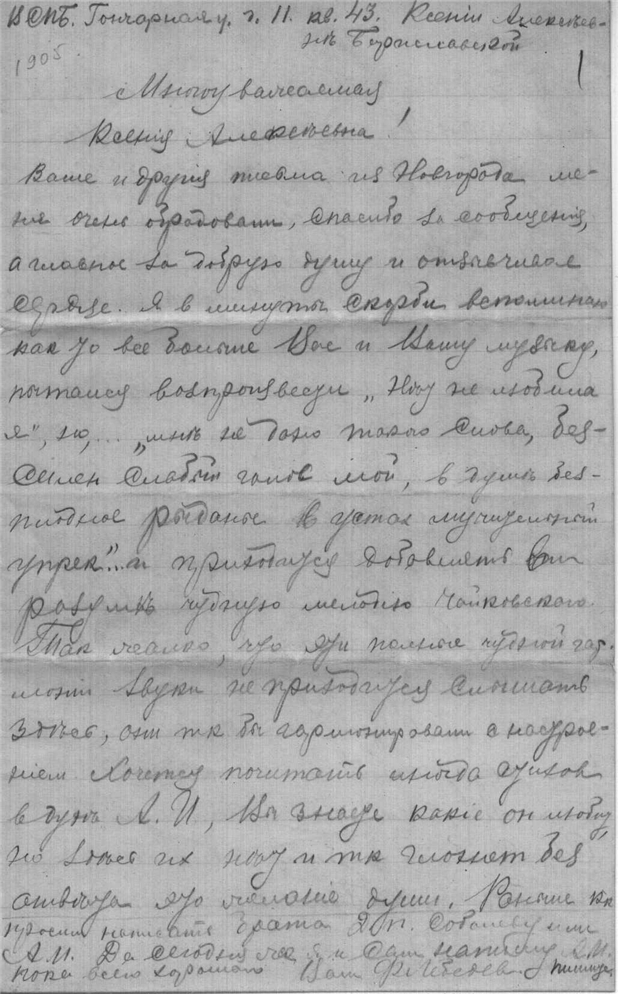 СПБ. Гончарная у. д. 11. кв. 43. Ксеніи Алексѣев-
нѣ Бориславской
1905.
Многоуважаемая
Ксенія Алексѣевна!
Ваше и другія письма из Новгорода ме-
ня очень обрадовали, спасибо за сообщенія,
а главное за добрую душу и отзывчивое
сердце. Я в минуты скорби вспоминаю
как то все больше Вас и Вашу музыку,
пытаюсь воспроизвести „Нѣт не любила
я", но,... „мнѣ не дано такого слова, без-
силен слабый голос мой, в душѣ без-
плодное рыданье в устах мучительный
упрек"... и приходится добавлять
чудную мелодію Чайковскаго.
Так жалко, что эти полные чудной гар-
моніи звуки не приходится слышать
здѣсь, они так бы гармонировали с настрое-
ніем. Хочется почитать иногда стихов
в духѣ А. И, Вы знаете какіе он любит,
но здѣсь их нѣт и так глохнет без
отвѣта это желаніе души. Раньше
просил написать брата Соболеву или
А.И. Да сегодня же я и сам напишу А.И.
пока всего хорошаго Ваш Ф Лебедев